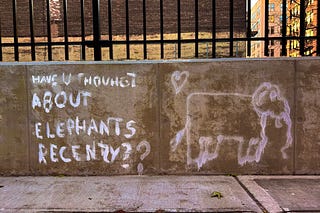 HAVE U THOUGHT
ABOUT
ELEPHANTS
RECENTLY?